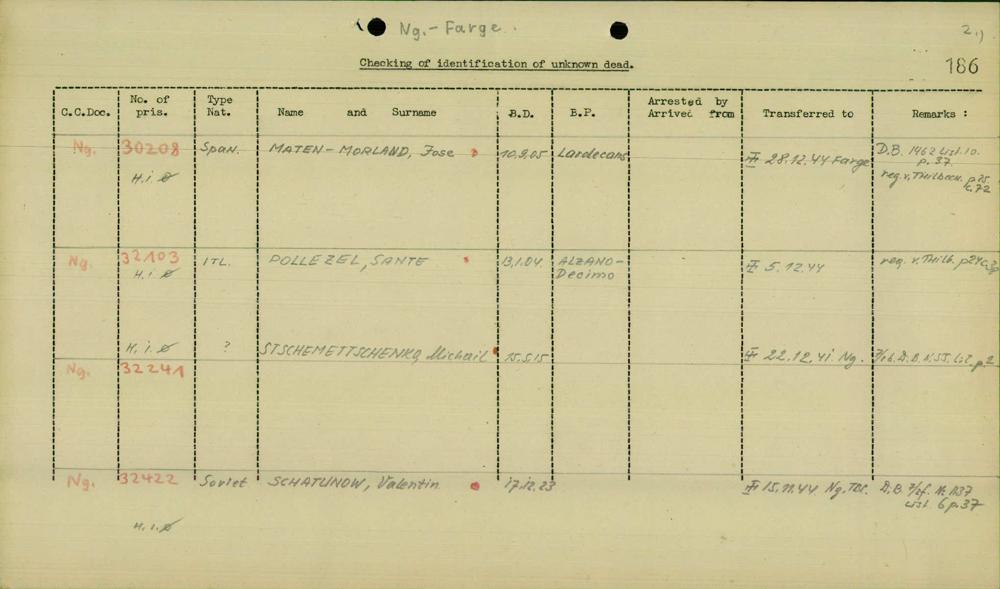 Ng. - Farge.
2.)
186
Checking of identification of unknown dead.
C.C.Doc. No. of pris. Type Nat. Name and Surname B.D. B.P. Arrested by Arrived from Transferred to Remarks :
Ng. 30208 Span. MATEN-MORLAND, Jose 10.9.05 Lardecans 28.12.44 Farge D.B. 1962 List. 10.
p. 37.
H.i. reg. v. p 25
c. 72
Ng. 32103 ITL. POLLEZEL, SANTE 13.1.04. ALZANO- 5.12.44 reg. v. Thilb. p24
H.i. Decimo
H.i. ? STSCHEMETTSCHENKO, Michail 15.5.15 22.12.41. Ng. D.B. List. p. 2
Ng. 32241
Ng. 32422 Soviet SCHATUNOW, Valentin 17.12.23 15.11.44 Ng, D.B. N. 1137
List. 6 p. 37
H.i.